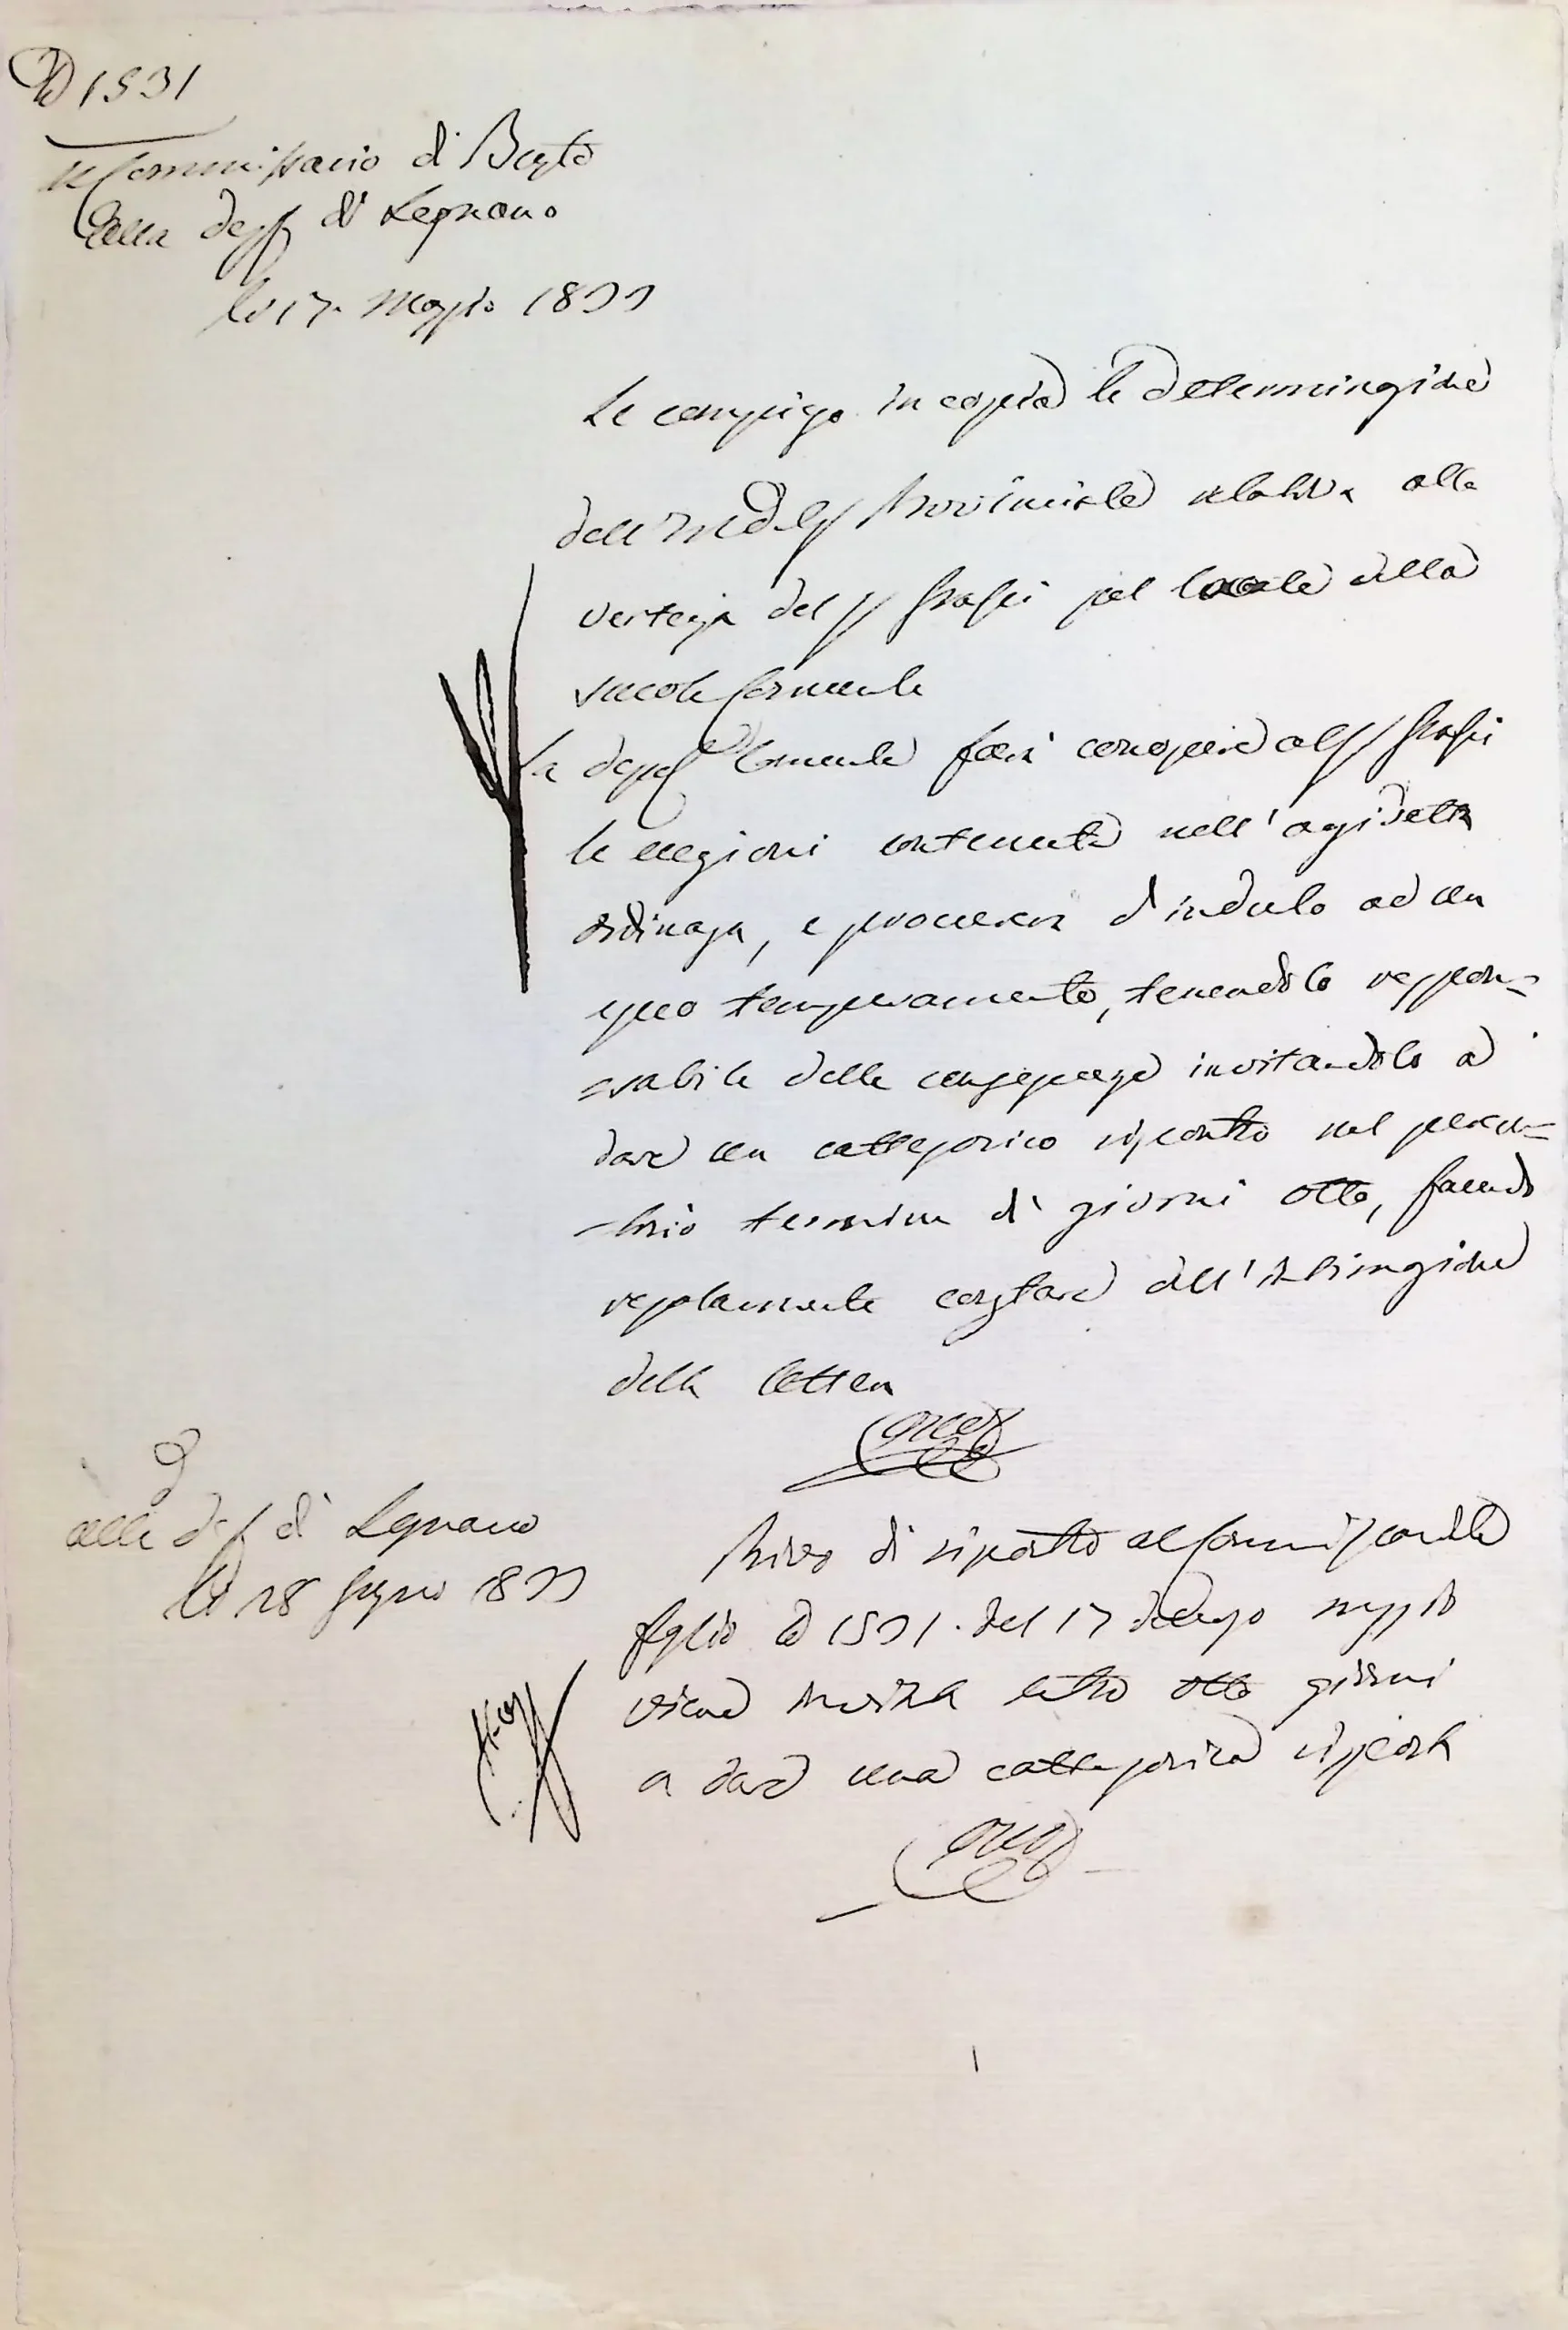 N 1531
Il Commissario di Busto
alla Dep di Legnano
li 17 Maggio 1833
Le compiego in copia la determinazione
dell' Provinciale relativa alla
vertenza del pel locale della
scuola Comunale
La Dep Comunale farà conoscere al
le ragioni contenute nell'
ordinanza, e procurerà d'indurlo ad un
equo temperamento, tenendolo respon=
=sabile delle conseguenze invitandolo a
dare un cattegorico riscontro nel peren=
=torio termine di giorni otto, facendo
regolarmente constare dell'intimazione
della lettera
alla Dep di Legnano
li 28 Giugno 1833
Priva di riscontro al Commissariale
foglio N 1531. del 17 maggio
viene invitata entro otto giorni
a dare una cattegorica risposta